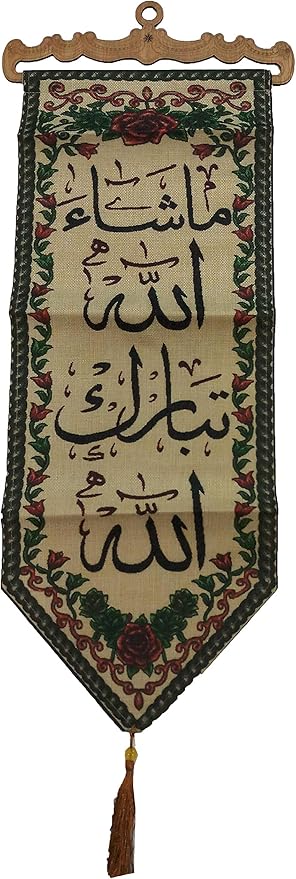 ماشاء
الله
تبارك
الله